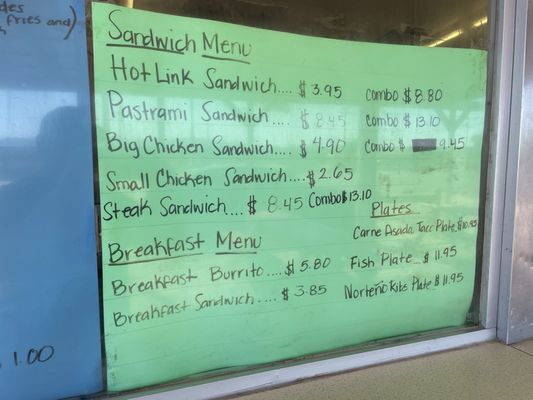 des
fries and)
Sandwich Menu
Hot Link Sandwich.... $3.95 Combo $8.80
Pastrami Sandwich.... $8.45 Combo $13.10
Big Chicken Sandwich.... $4.90 Combo $ 9.45
Small Chicken Sandwich....$2.65
Steak Sandwich...$8.45 Combo$13.10
Plates
Carne Asada Taco Plate $10.95
Fish Plate..$11.95
Norteño Ribs Plate $11.95
Breakfast Menu
Breakfast Burrito....$5.80
Breakfast Sandwich.... $3.85
1.00